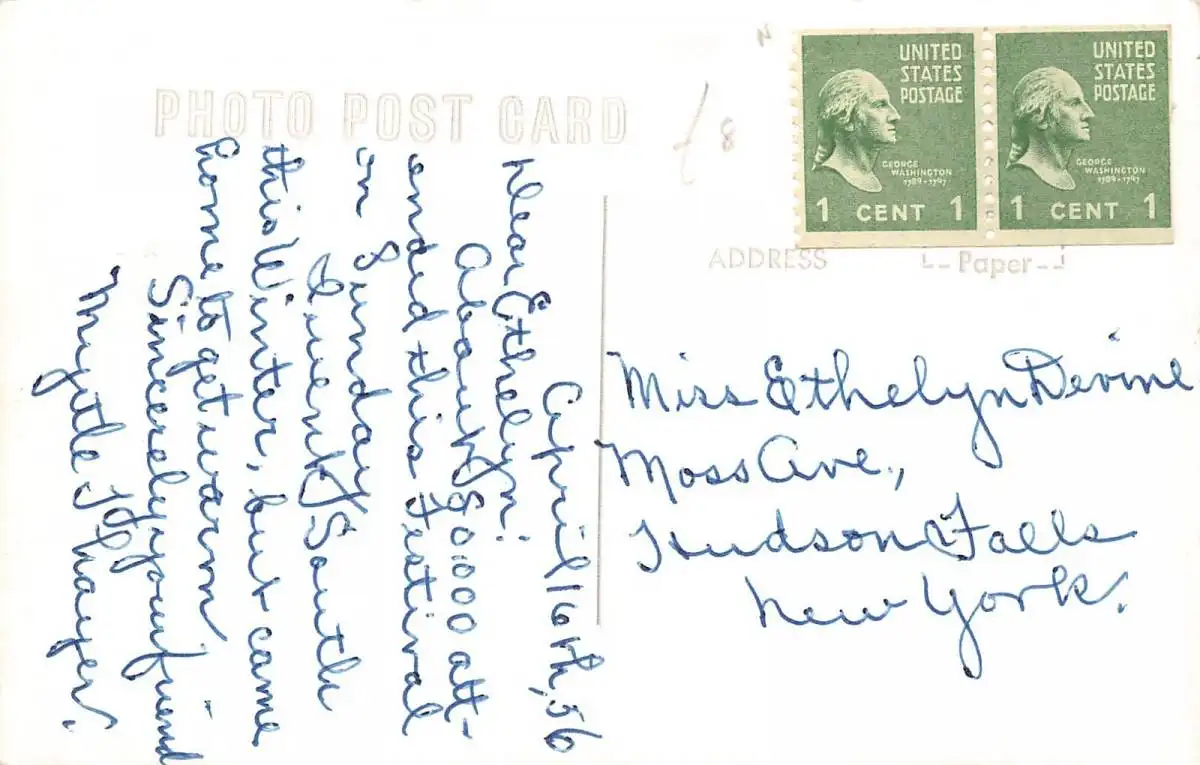 PHOTO POST CARD
April 16th, 56
Dear Ethelyn:
About 80,000 att-
ended this Festival
on Sunday.
I went South
this Winter, but came
home to get warm.
Sincerely your friend
Myrtle Thayer.
UNITED
STATES
POSTAGE
GEORGE
WASHINGTON
1789-1797
1 CENT 1
UNITED
STATES
POSTAGE
GEORGE
WASHINGTON
1789-1797
1 CENT 1
8
ADDRESS
Paper
Miss Ethelyn Devine
Moss Ave.,
Hudson Falls
New York.